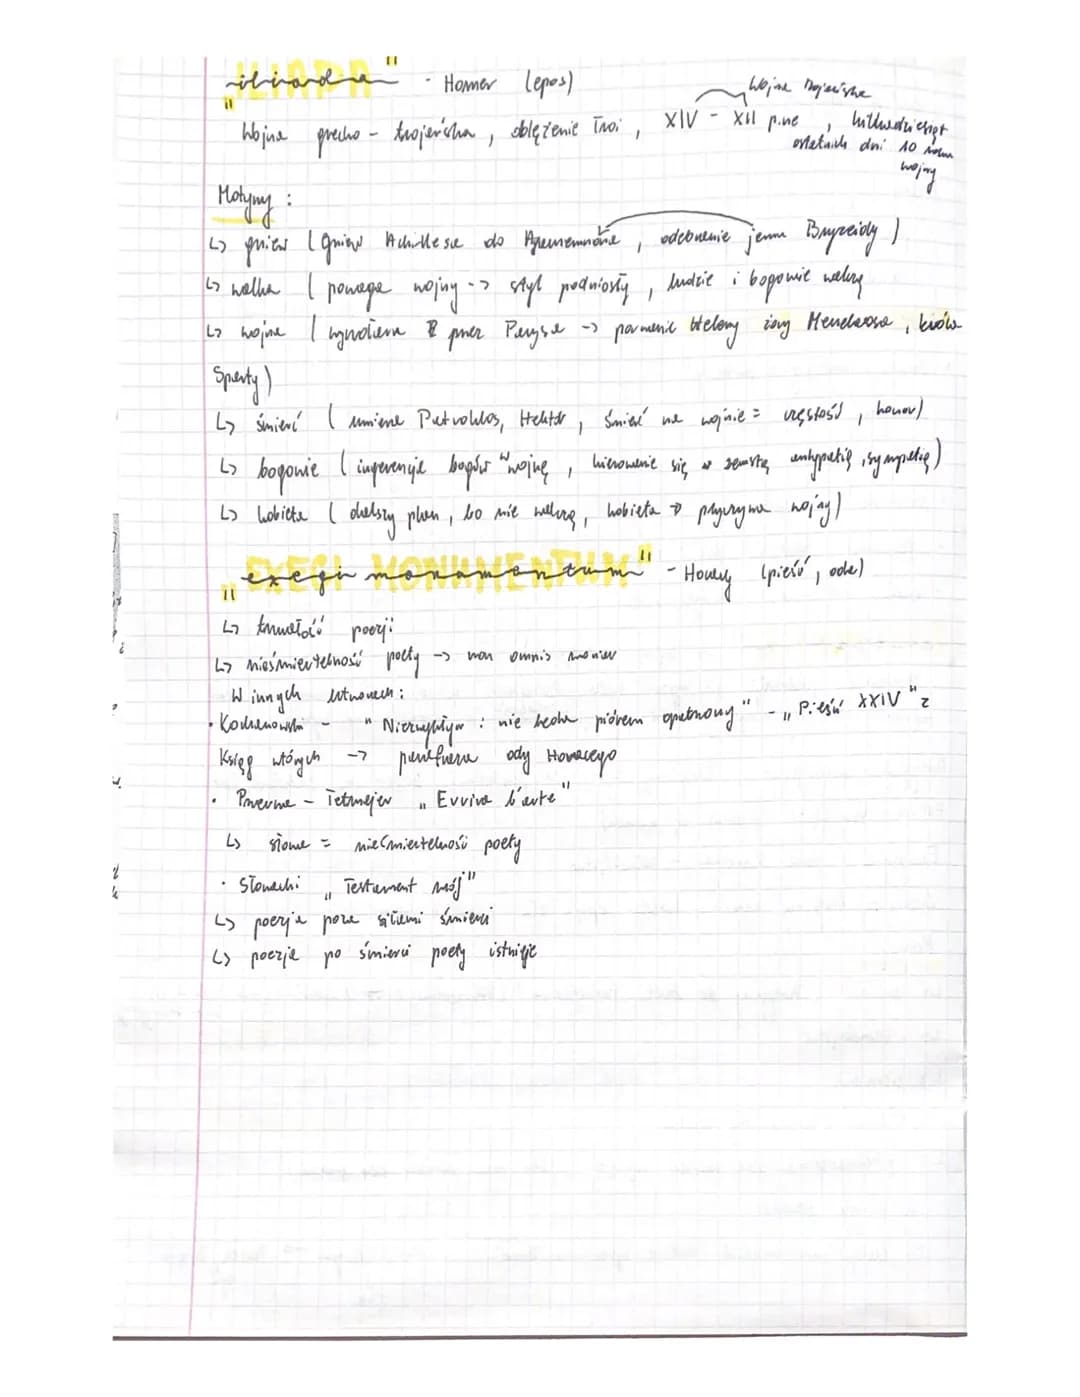 „iliada" - Homer (epos)
Wojna Trojańska
Wojna grecko - trojańska, oblężenie Troi, XIV - XII p.n.e, kilkudziesiąt
ostatnich dni 10 roku
wojny
Motywy:
↳ gniew (gniew Achillesa do Agamemnona, odebranie jemu Bryzeidy)
↳ walka (powaga wojny -> styl podniosły, ludzie i bogowie walczą
↳ wojna (wywołana przez Parysa -> porwanie Heleny żony Menelaosa, króla
Sparty)
↳ śmierć (umiera Patroklos, Hektor, śmierć na wojnie = częstość, honor)
↳ bogowie (ingerencje bogów w wojnę, kierowanie się zemstą, antypatią, sympatią)
↳ kobieta (dalszy plan, bo nie walczą, kobieta -> przyczyna wojny)
„exegi monumentum" - Horacy (pieśń, oda)
↳ trwałość poezji
↳ nieśmiertelność poety -> non omnis moriar
W innych utworach:
· Kochanowski - "Niezwykłym i nie leda piórem opatrzony" - „Pieśń XXIV" z
Ksiąg wtórych -> parafraza ody Horacego
· Przerwa - Tetmajer „Evviva l'arte"
↳ sława = nieśmiertelność poety
· Słowacki „Testament mój"
↳ poezja poza siłami śmierci
↳ poezja po śmierci poety istnieje